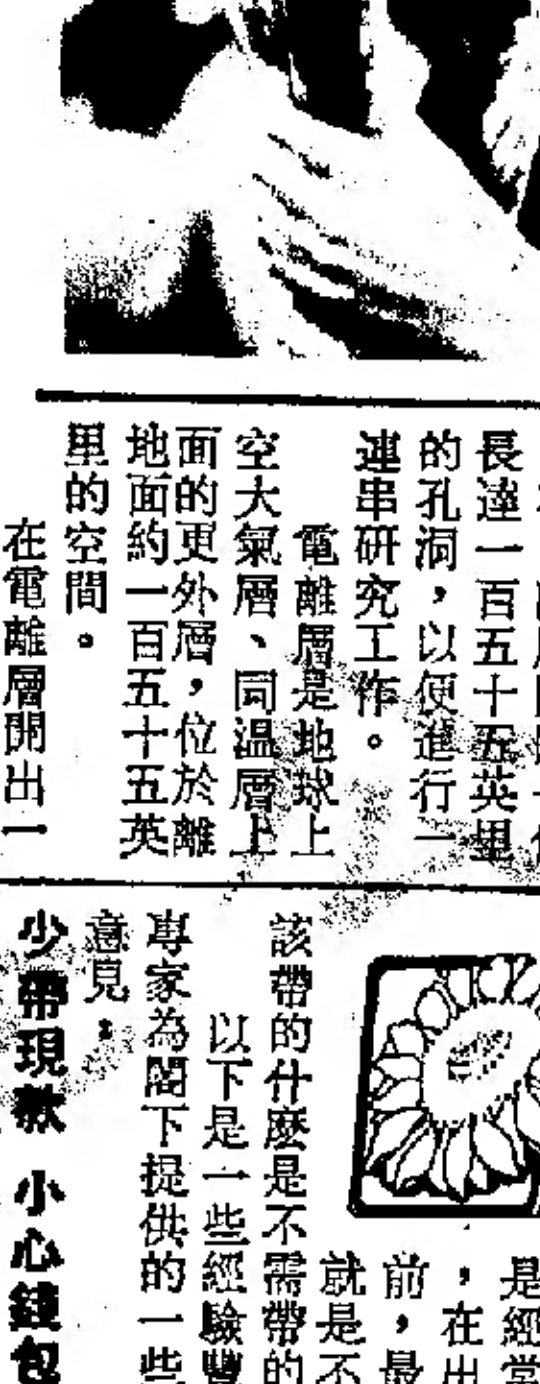 長達一百五十五英里
的孔洞，以便進行一
連串研究工作。
電離層是地球上
空大氣層、同溫層上
面的更外層，位於離
地面約一百五十五英
里的空間。
在電離層開出一
是經常
，在出
前，最
就是不
該帶的什麼是不需帶的
以下是一些經驗豐
專家為閣下提供的一些
意見：
少帶現款 小心錢包